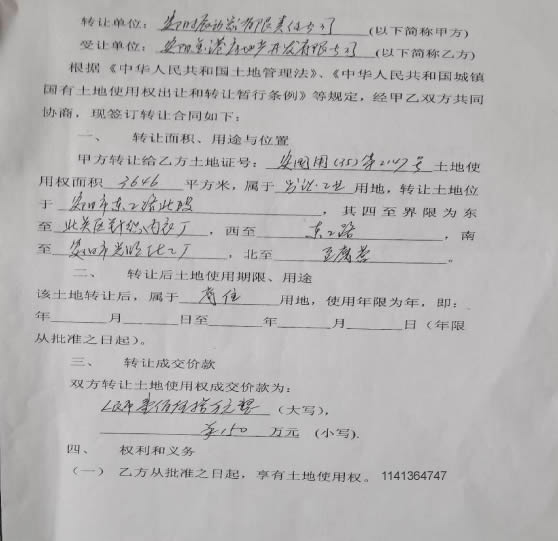 转让单位：安阳振动器有限责任公司（以下简称甲方）
受让单位：安阳金港房地产开发有限公司（以下简称乙方）
根据《中华人民共和国土地管理法》、《中华人民共和国城镇
国有土地使用权出让和转让暂行条例》等规定，经甲乙双方共同
协商，现签订转让合同如下：
一、 转让面积、用途与位置
甲方转让给乙方土地证号：安国用(95)第2147号土地使
用权面积3646平方米，属于 工业 用地，转让土地位
于安阳市东工路北段，其四至界限为东
至北关区针织内衣厂，西至东工路，南
至安阳市 化工厂，北至豆腐营。
二、 转让后土地使用期限、用途
该土地转让后，属于商住用地，使用年限为年，即：
年 月 日至 年 月 日（年限
从批准之日起）。
三、 转让成交价款
双方转让土地使用权成交价款为：
人民币壹佰伍拾万元整（大写），
￥150万元（小写）.
四、 权利和义务
（一） 乙方从批准之日起，享有土地使用权。 1141364747